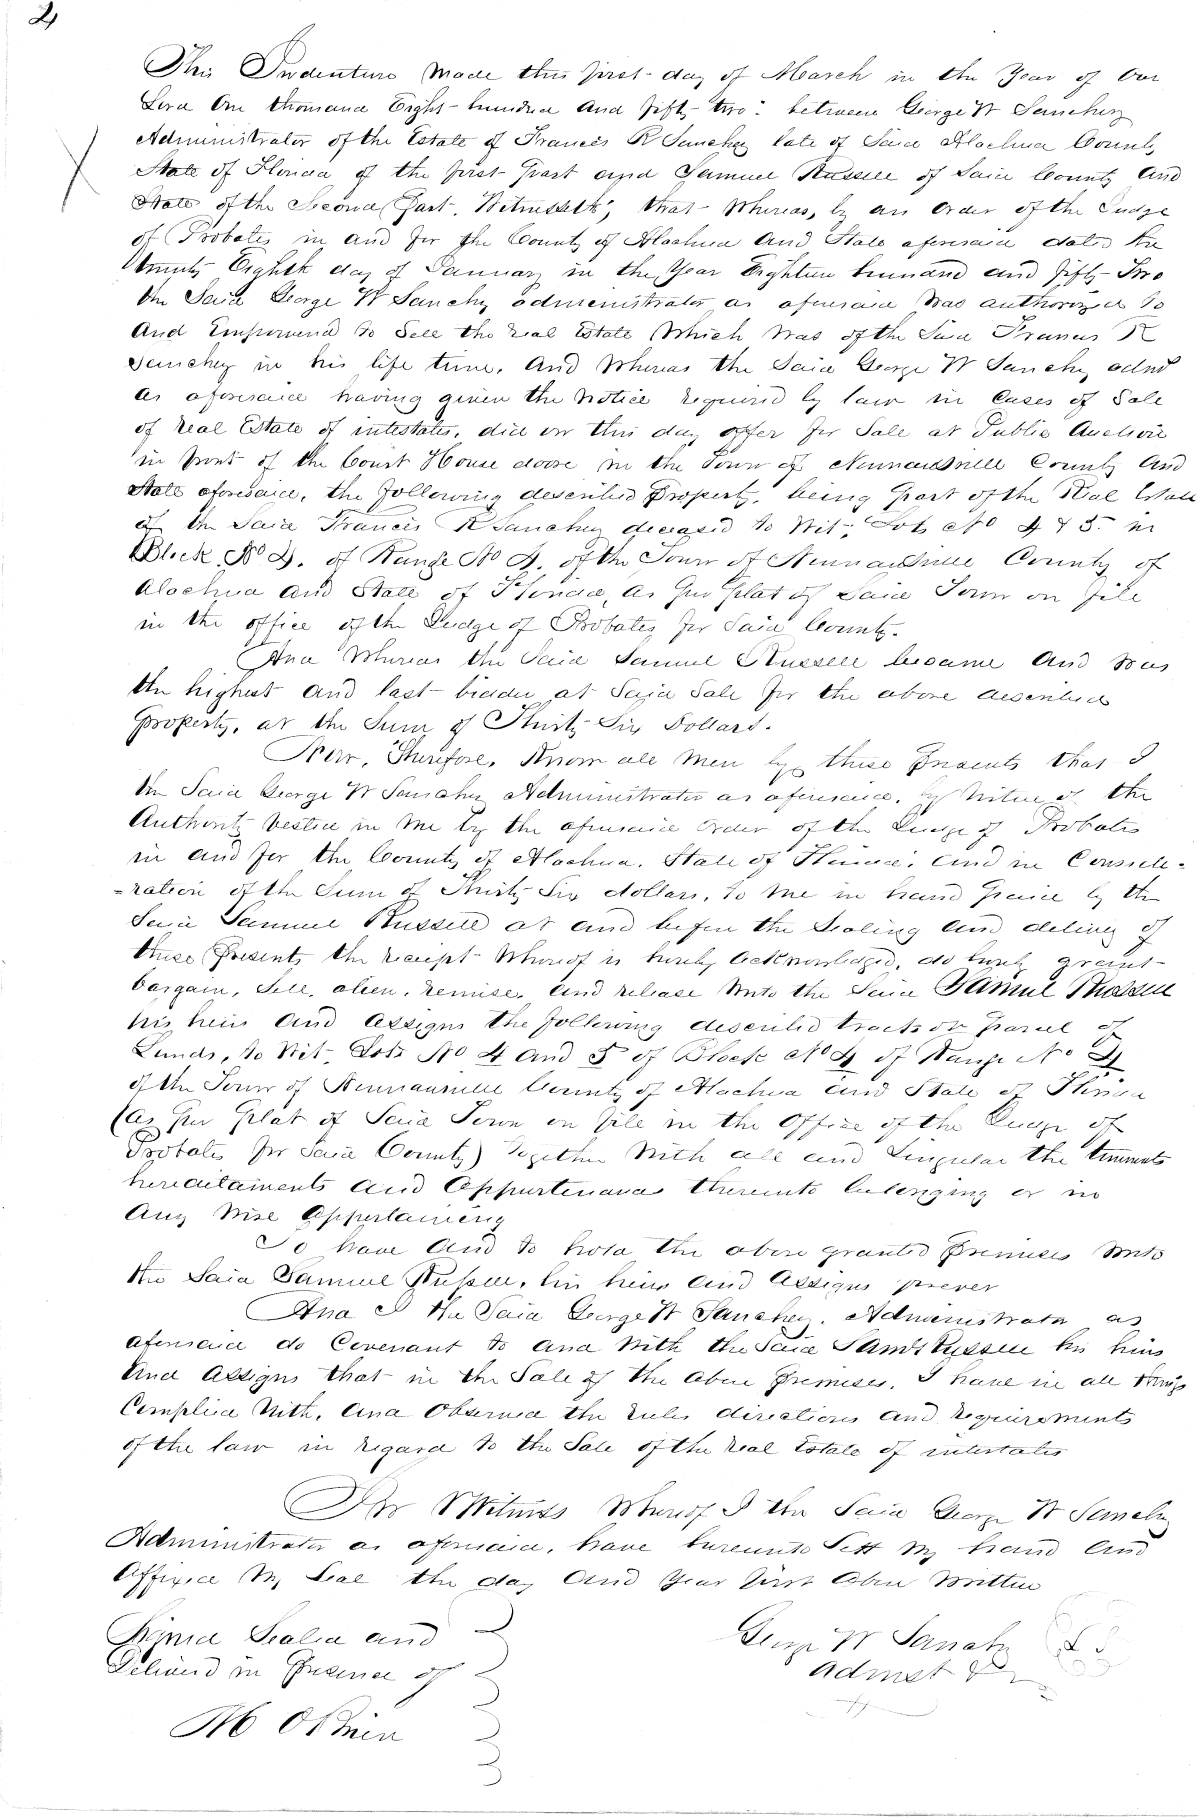 2
This Indenture made this first day of March in the Year of Our
Lord One thousand Eight hundred and fifty two: between George W Sanchez
Administrator of the Estate of Francis R Sanchez late of Said Alachua County
State of Florida of the first part and Samuel Russell of Said County and
State of the Second Part. Witnesseth; that Whereas, by an order of the Judge
of Probates in and for the County of Alachua and State aforesaid dated the
twenty Eighth day of January in the Year Eighteen hundred and fifty Two
the Said George W Sanchez administrator as aforesaid was authorized to
and Empowered to Sell the real Estate which was of the Said Francis R
Sanchez in his life time. And Whereas the Said George W Sanchez admr
as aforesaid having given the notice required by law in cases of Sale
of real Estate of intestates, did on this day offer for Sale at Public Auction
in front of the Court House doore in the Town of Newnansville County and
State aforesaid, the following described Property, being part of the Real Estate
of the Said Francis R Sanchez deceased to Wit; Lots No 4 & 5 in
Block No 4. of Range No 4. of the Town of Newnansville County of
Alachua and State of Florida, as per plat of Said Town on file
in the office of the Judge of Probates for Said County.
And Whereas the Said Samuel Russell became and was
the highest and last bidder at Said Sale for the above described
property, at the Sum of Thirty Six Dollars.
Now, Therefore, Know all Men by these presents that I
the Said George W Sanchez Administrator as aforesaid, by Virtue of the
Authority vested in me by the aforesaid order of the Judge of Probates
in and for the County of Alachua. State of Florida, and in Conside-
-ration of the Sum of Thirty Six dollars, to me in hand paid by the
Said Samuel Russell at and before the Sealing and delivery of
these presents the receipt whereof is hereby acknowledged, do hereby grant
bargain, Sell, alien, remise, and release unto the Said Samuel Russell
his heirs and assigns the following described tracts or parcel of
Lands, to Wit. Lots No 4 and 5 of Block No 4 of Range No 4
of the Town of Newnansville County of Alachua and State of Florida
(as per plat of Said Town on file in the Office of the Judge of
Probates for Said County) Together With all and Singular the tenements
hereditaments and Appurtenances thereunto belonging or in
any wise Appertaining
To have and to hold the above granted premises unto
the Said Samuel Russell, his heirs and assigns forever
And I the Said George W Sanchez, Administrator as
aforesaid do Covenant to and with the Said Saml Russell his heirs
and assigns that in the Sale of the above premises, I have in all things
Complied With, and Observed the rules directions and requirements
of the law in regard to the Sale of the real Estate of intestates
In Witness Whereof I the Said George W Sanchez
Administrator as aforesaid, have hereunto Sett my hand and
Affixed my Seal the day and Year first above written
Signed Sealed and
Delivered in Presence of
M OBrien
George W Sanchez L S
Admst